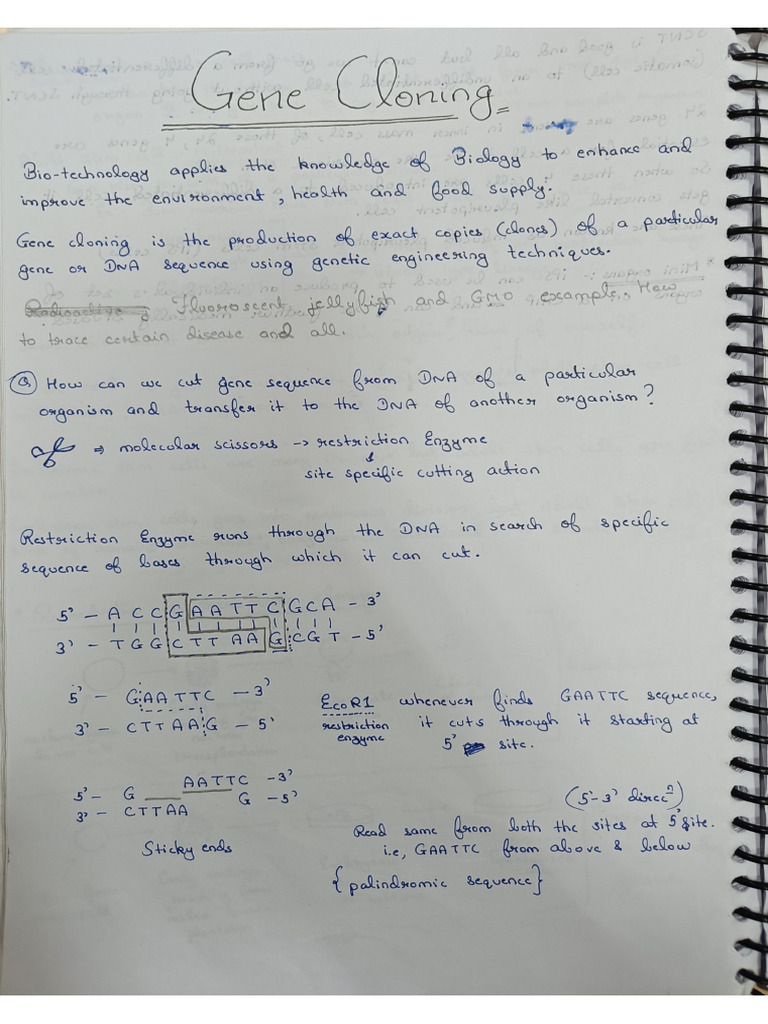 Gene Cloning
Bio-technology applies the knowledge of Biology to enhance and
improve the environment, health and food supply.
Gene cloning is the production of exact copies (clones) of a particular
gene or DNA sequence using genetic engineering techniques.
Radioactive Fluoroscent jellyfish and GMO example. How
to trace certain disease and all.
Q) How can we cut gene sequence from DNA of a particular
organism and transfer it to the DNA of another organism?
⇒ molecular scissors → restriction Enzyme
↓
site specific cutting action
Restriction Enzyme runs through the DNA in search of specific
sequence of bases through which it can cut.
5' - A C C G A A T T C G C A - 3'
3' - T G G C T T A A G C G T - 5'
5' - G A A T T C - 3'
3' - C T T A A G - 5'
EcoR1 whenever finds GAATTC sequence,
restriction enzyme it cuts through it starting at
5' site.
5' - G AATTC - 3'
3' - CTTAA G - 5'
Sticky ends
(5'-3' direcⁿ)
Read same from both the sites at 5' site.
i.e, GAATTC from above & below
{palindromic sequence}